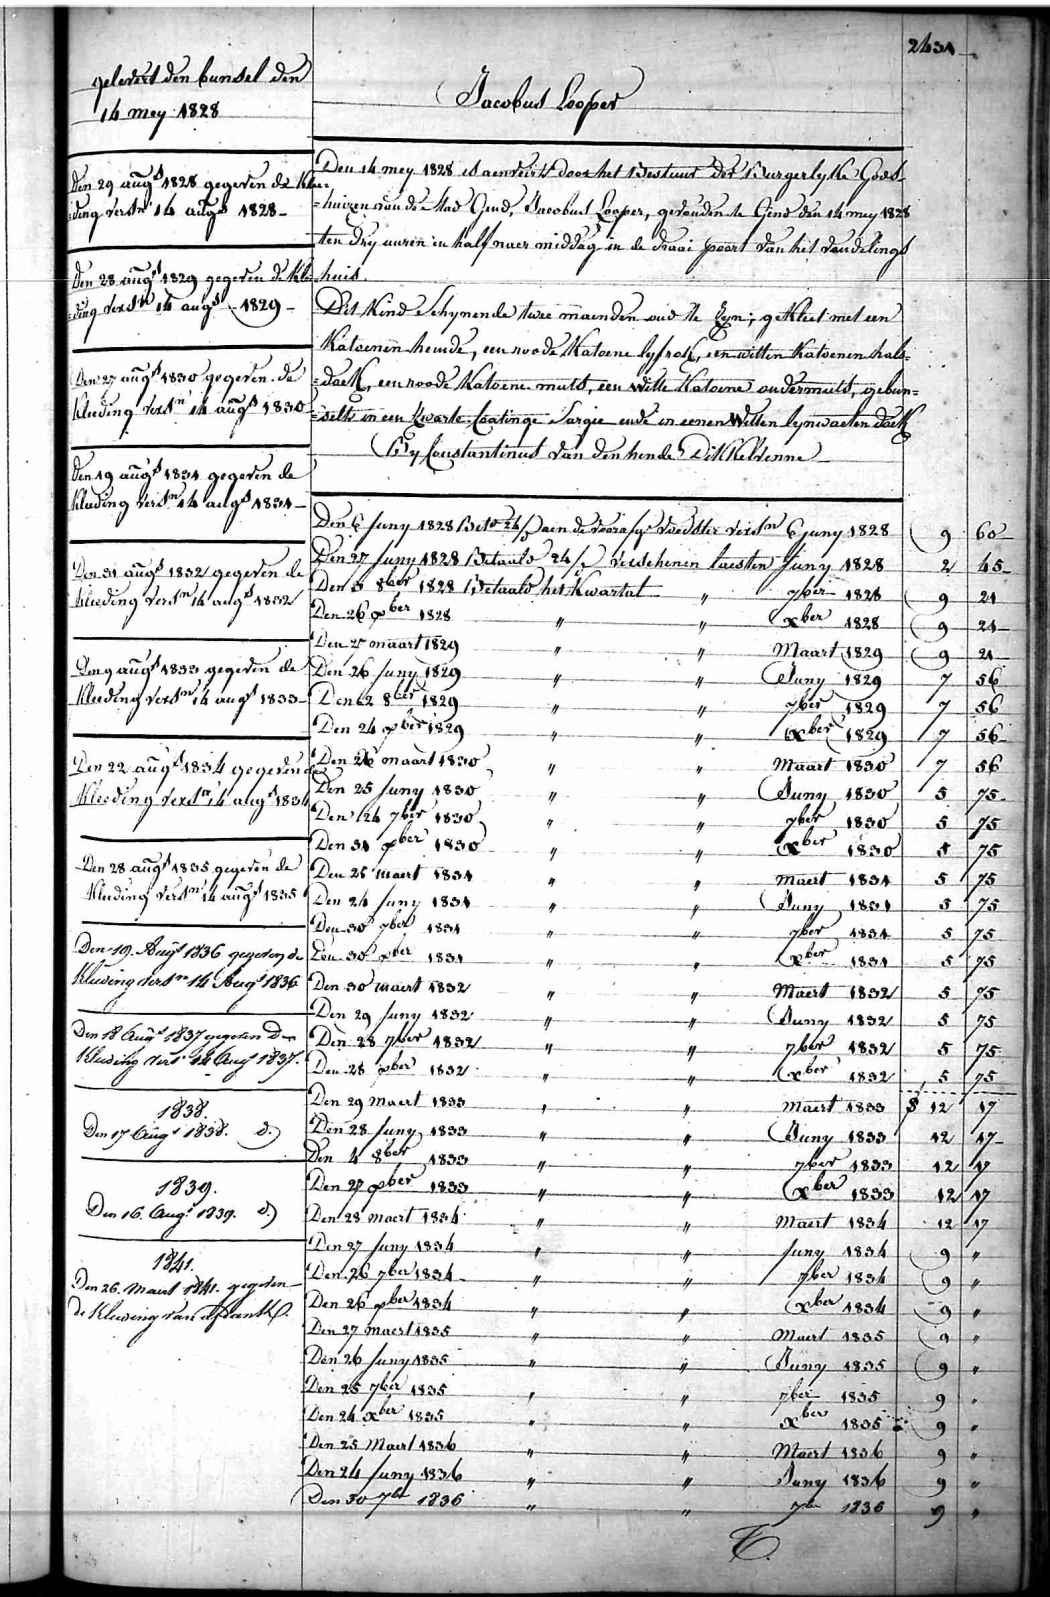 2431
gelevert den bunsel den
14 mey 1828
Jacobus Looper
Den 29 augs 1828 gegeven de klee,
=ding versn 14 augs 1828
Den 28 augs 1829 gegeven de klee
=ding versn 14 augs 1829
Den 27 augs 1830 gegeven de
kleeding versn 14 augs 1830
Den 19 augs 1831 gegeven de
kleeding versn 14 augs 1831
Den 31 augs 1832 gegeven de
kleeding versn 14 augs 1832
Den 9 augs 1833 gegeven de
kleeding versn 14 augs 1833
Den 22 augs 1834 gegeven de
kleeding versn 14 augs 1834
Den 28 augs 1835 gegeven de
kleeding versn 14 augs 1835
Den 19. Augs 1836 gegeven de
kleeding versn 14 Augs 1836
Den 18 Augs 1837 gegeven den
kleeding vers 14 Aug 1837.
1838.
Den 17 Augs 1838. d.)
1839.
Den 16. Augs 1839. d)
1841.
Den 26. Maert 1841. gegeven
de kleeding van
Den 14 mey 1828 is aenveird door het Bestuur der Burgerlyke Gods-
=huizen van de stad Gend, Jacobus Looper, gevonden te Gend den 14 mey 1828
ten dry uuren en half naer middag in de draai poort van het vondelings
huis.
Dit kind schynende twee maenden oud te zyn, gekleet met een
katoenen hemde, een roode katoene lyfrok, een witten katoenen hals-
=doek, een roode katoene muts, een witte katoene ondermuts, gebun-
=selt in een zwarte Sargie ende in eenen witten lynwaeten doek
By Constantinus van den hende Dikkelvenne
Den 6 Juny 1828 aen de voorsz voedster versn 6 juny 1828 9 60
Den 27 Juny 1828 Betaald 24 verschenen laesten Juny 1828 2 45
Den 3 8ber 1828 Betaald het kwartal " 7ber 1828 9 21
Den 26 xber 1828 " " xber 1828 9 21
Den 27 maart 1829 " " Maart 1829 9 21
Den 26 Juny 1829 " " Juny 1829 7 56
Den 2 8ber 1829 " " 7ber 1829 7 56
Den 24 xber 1829 " " xber 1829 7 56
Den 26 maart 1830 " " Maart 1830 7 56
Den 25 Juny 1830 " " Juny 1830 5 75
Den 24 7ber 1830 " " 7ber 1830 5 75
Den 31 xber 1830 " " xber 1830 5 75
Den 25 maert 1831 " " Maert 1831 5 75
Den 24 Juny 1831 " " Juny 1831 5 75
Den 30 7ber 1831 " " 7ber 1831 5 75
Den 30 xber 1831 " " xber 1831 5 75
Den 30 maert 1832 " " Maert 1832 5 75
Den 29 Juny 1832 " " Juny 1832 5 75
Den 28 7ber 1832 " " 7ber 1832 5 75
Den 28 xber 1832 " " xber 1832 5 75
Den 29 Maert 1833 " " Maert 1833 12 17
Den 28 Juny 1833 " " Juny 1833 12 17
Den 4 8ber 1833 " " 7ber 1833 12 17
Den 27 xber 1833 " " xber 1833 12 17
Den 28 Maert 1834 " " Maert 1834 12 17
Den 27 Juny 1834 " " Juny 1834 9 "
Den 26 7ber 1834 " " 7ber 1834 9 "
Den 26 xber 1834 " " xber 1834 9 "
Den 27 maert 1835 " " Maert 1835 9 "
Den 26 Juny 1835 " " Juny 1835 9 "
Den 25 7ber 1835 " " 7ber 1835 9 "
Den 24 xber 1835 " " xber 1835 9 "
Den 25 Maert 1836 " " Maert 1836 9 "
Den 24 Juny 1836 " " Juny 1836 9 "
Den 30 7ber 1836 " " 7ber 1836 9 "